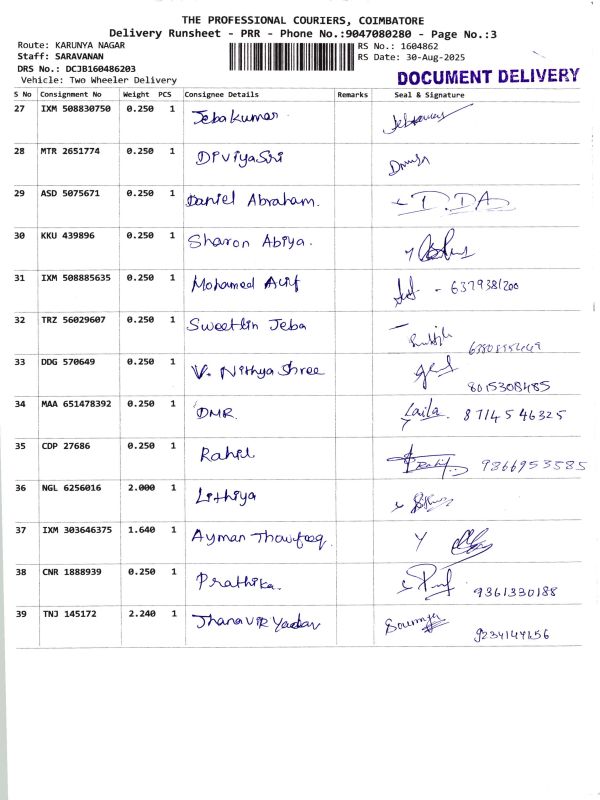 THE PROFESSIONAL COURIERS, COIMBATORE
Delivery Runsheet - PRR - Phone No.:9047080280 - Page No.:3
Route: KARUNYA NAGAR RS No.: 1604862
Staff: SARAVANAN RS Date: 30-Aug-2025
DRS No.: DCJB160486203
Vehicle: Two Wheeler Delivery DOCUMENT DELIVERY
S No Consignment No Weight PCS Consignee Details Remarks Seal & Signature
27 IXM 508830750 0.250 1 Jebakumar
28 MTR 2651774 0.250 1 DivyaSri
29 ASD 5075671 0.250 1 Daniel Abraham. D.DA
30 KKU 439896 0.250 1 Sharon Abiya.
31 IXM 508885635 0.250 1 Mohamed Asif - 6379381200
32 TRZ 56029607 0.250 1 Sweetlin Jeba
33 DDG 570649 0.250 1 V. Nithya Shree 8015308485
34 MAA 651478392 0.250 1 DMR. Laila. 8714546325
35 CDP 27686 0.250 1 Rahil Rahil 9866953585
36 NGL 6256016 2.000 1 Lithiya
37 IXM 303646375 1.640 1 Ayman Thowfeeq.
38 CNR 1888939 0.250 1 Prathika. 9361330188
39 TNJ 145172 2.240 1 Jhanavir Yadav Soumya